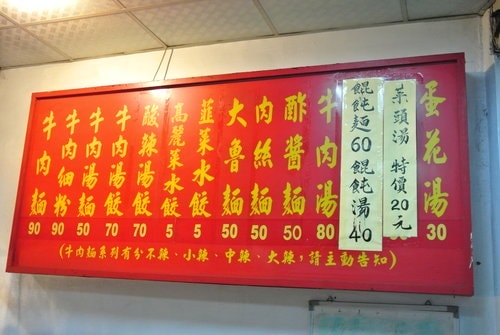 蛋花湯 30
菜頭湯 特價20元
餛飩麵60 餛飩湯40
牛肉湯 80
酢醬麵 50
肉絲麵 50
大魯麵 50
韮菜水餃 5
高麗菜水餃 5
酸辣湯餃 70
牛肉湯餃 70
牛肉湯麵 50
牛肉細粉 90
牛肉麵 90
(牛肉麵系列有分不辣、小辣、中辣、大辣,請主動告知)